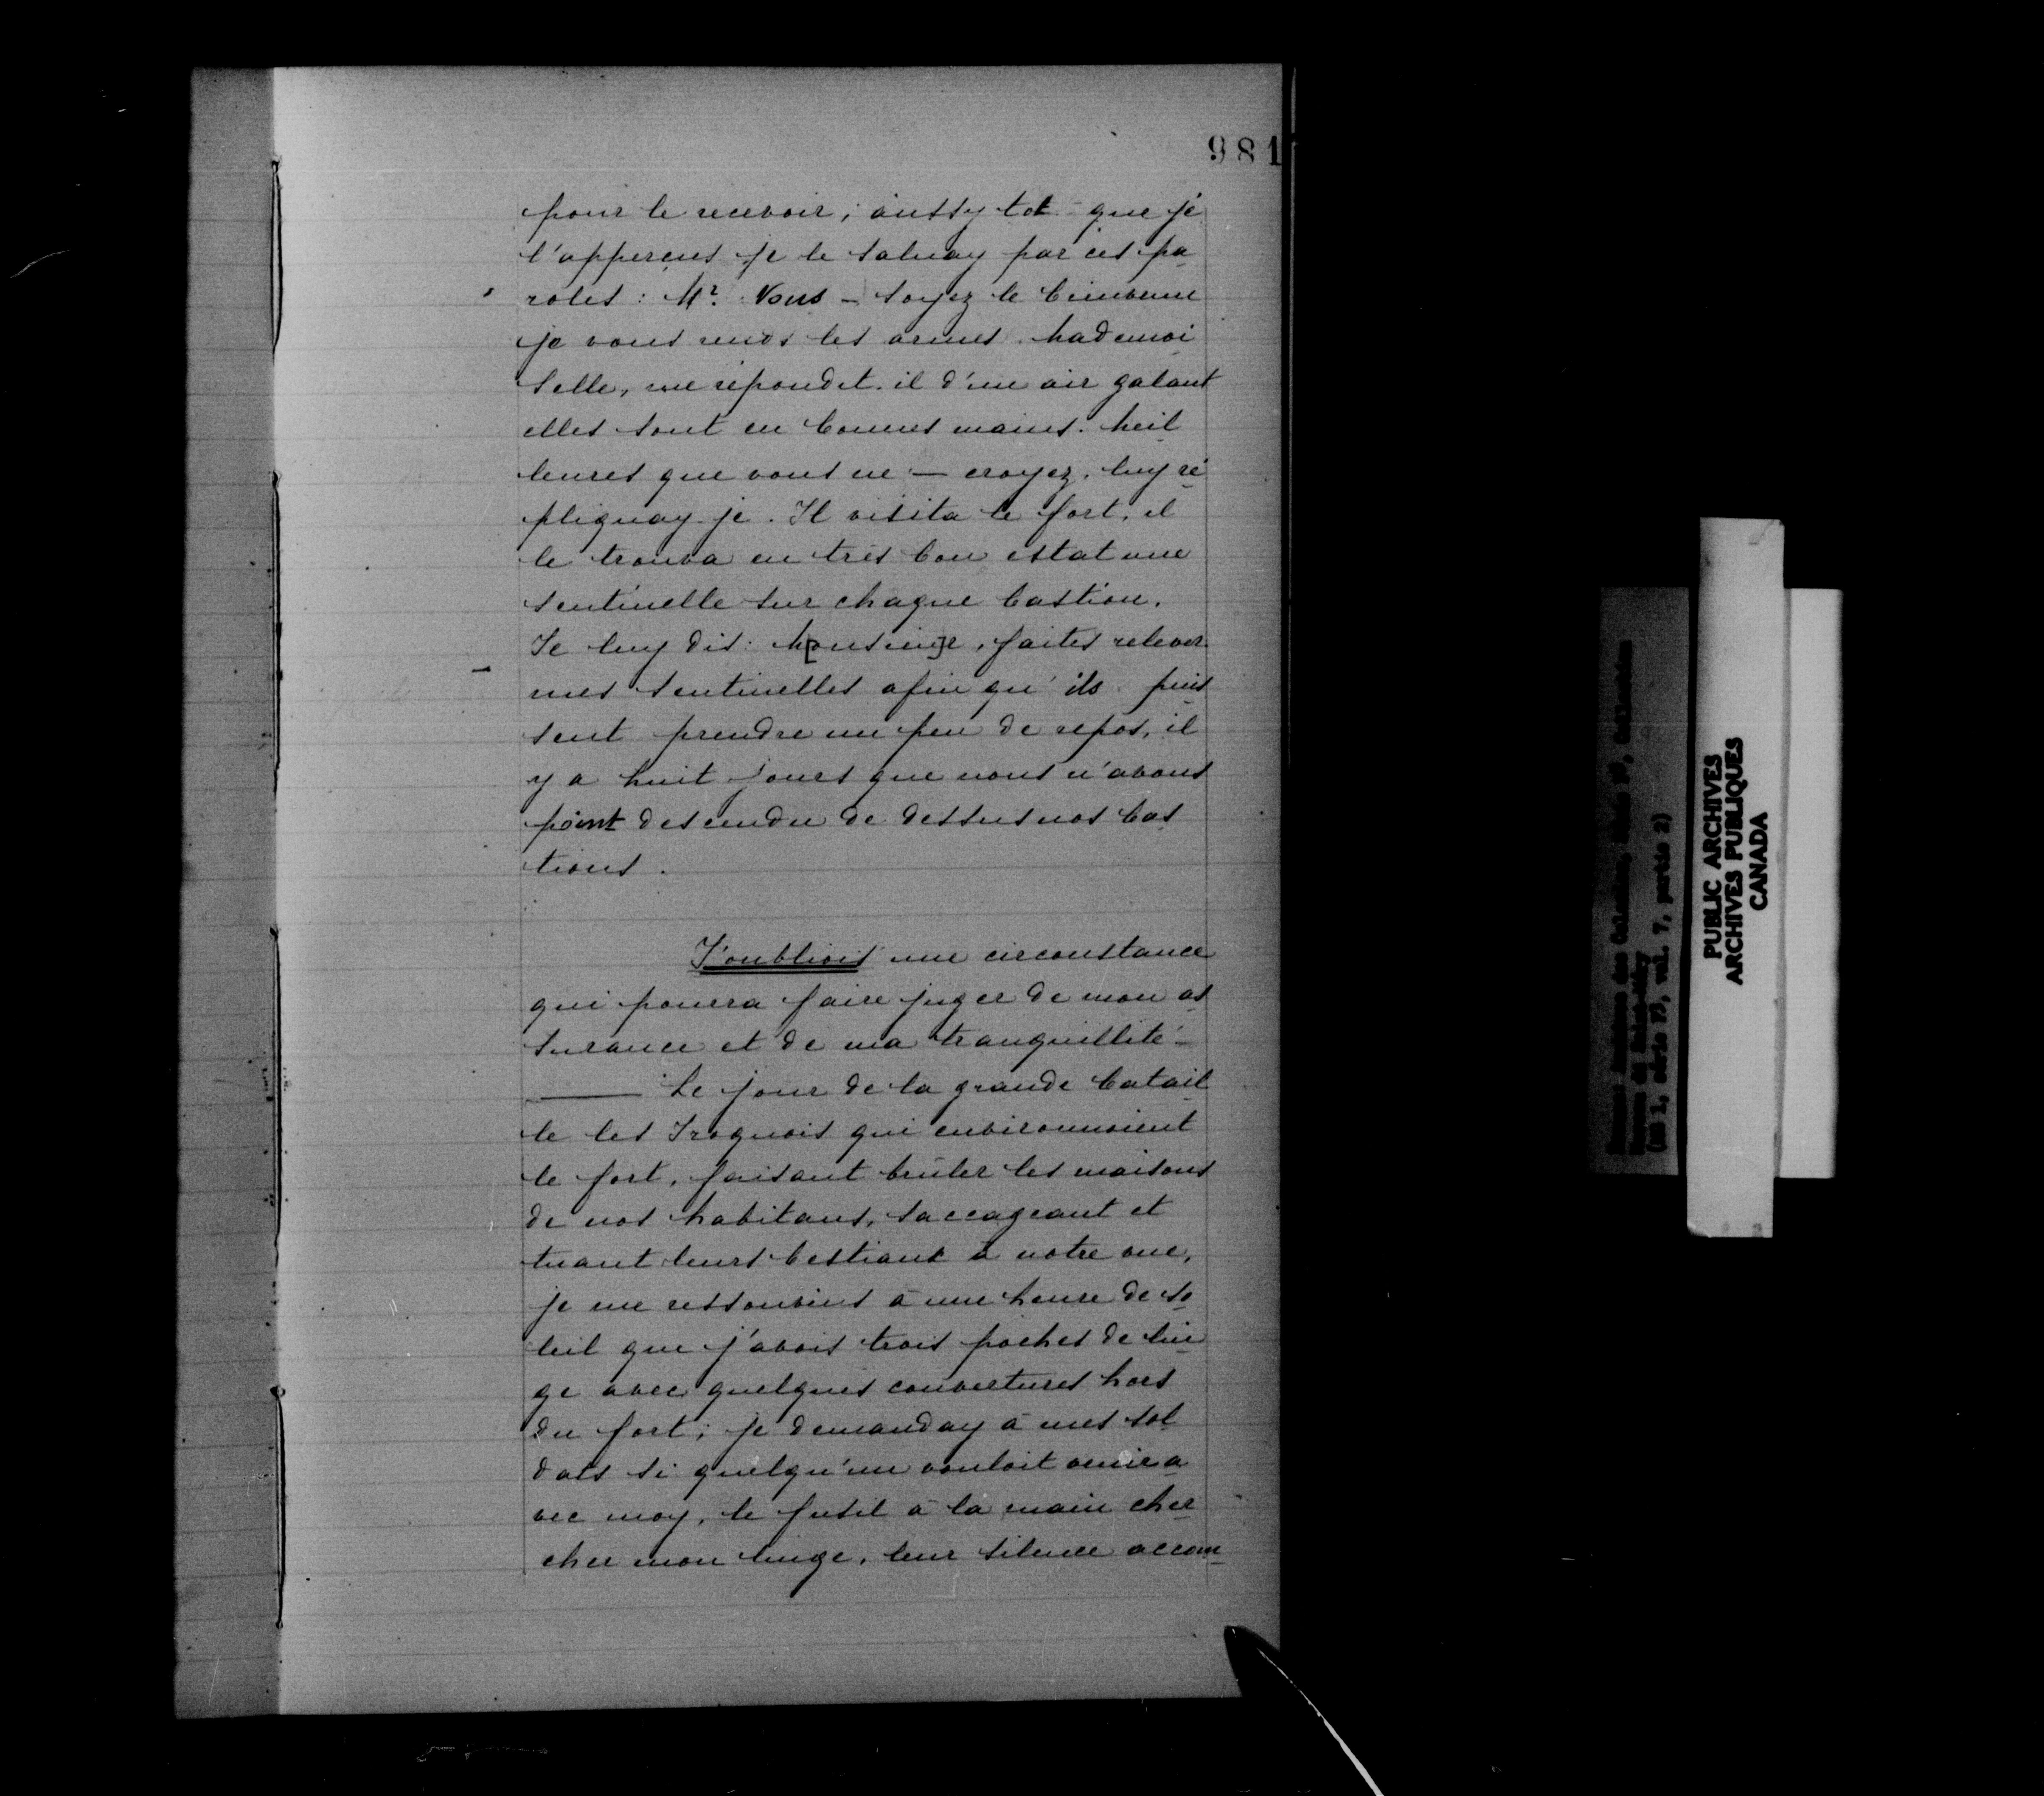 981
pour le recevoir; aussy tot que je
l'apperçus je le saluay par ces pa
roles: Mr. Vous - soyez le bienvenu
je vous rends les armes. Mademoi
selle, me répondit-il d'un air galant
elles sont en bonnes mains. Meil
leures que vous ne - croyez, luy ré
pliquay-je. Il visita le fort, il
le trouva en très bon estat une
sentinelle sur chaque bastion.
Je luy dis: M[onsieu]r, faites relever
mes sentinelles afin qu'ils puis
sent prendre un peu de repos, il
y a huit jours que nous n'avons
point descendu de dessus nos bas
tions.
J'oubliois une circonstance
qui pourra faire juger de mon as
surance et de ma tranquillité -
Le jour de la grande batail
le les Iroquois qui environnoient
le fort, faisant brûler les maisons
de nos habitans, saccageant et
tuant leurs bestiaux à notre vue,
je me ressouvins à une heure de so
leil que j'avois trois poches de lin
ge avec quelques couvertures hors
du fort; je demanday à mes sol
dats si quelqu'un vouloit venir a
vec moy, le fusil à la main cher
cher mon linge, leur silence accom
PUBLIC ARCHIVES
ARCHIVES PUBLIQUES
CANADA
(MG 1, série F3, vol. 7, partie 2)